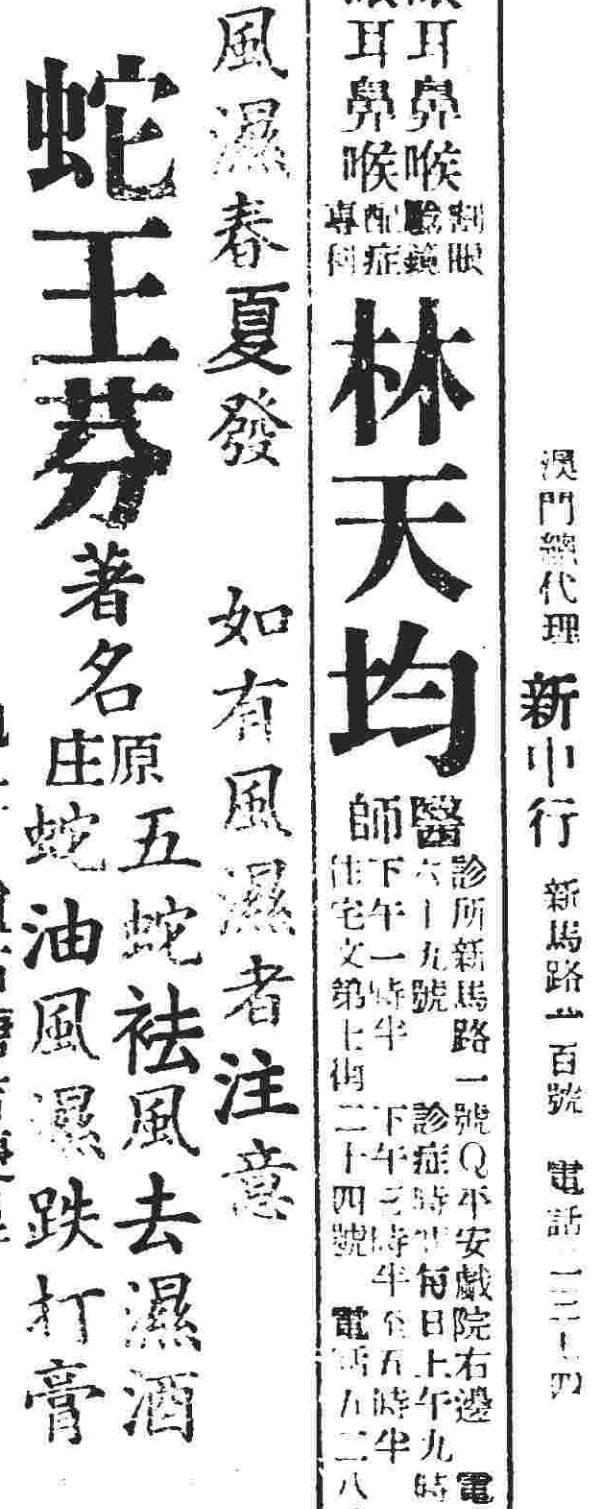 澳門總代理 新中行 新馬路 百號 電話
眼耳鼻喉
眼耳鼻喉
割眼
驗鏡
配症
專科
林天均
醫師
診所新馬路一號Q平安戲院右邊 電
六一九號 診症時間每日上午九時
下午一時半 下午三時半至五時半
住宅文第士街二十四號 電話五二八
風濕春夏發 如有風濕者注意
蛇王芬著名
原庄
五蛇祛風去濕酒
蛇油風濕跌打膏